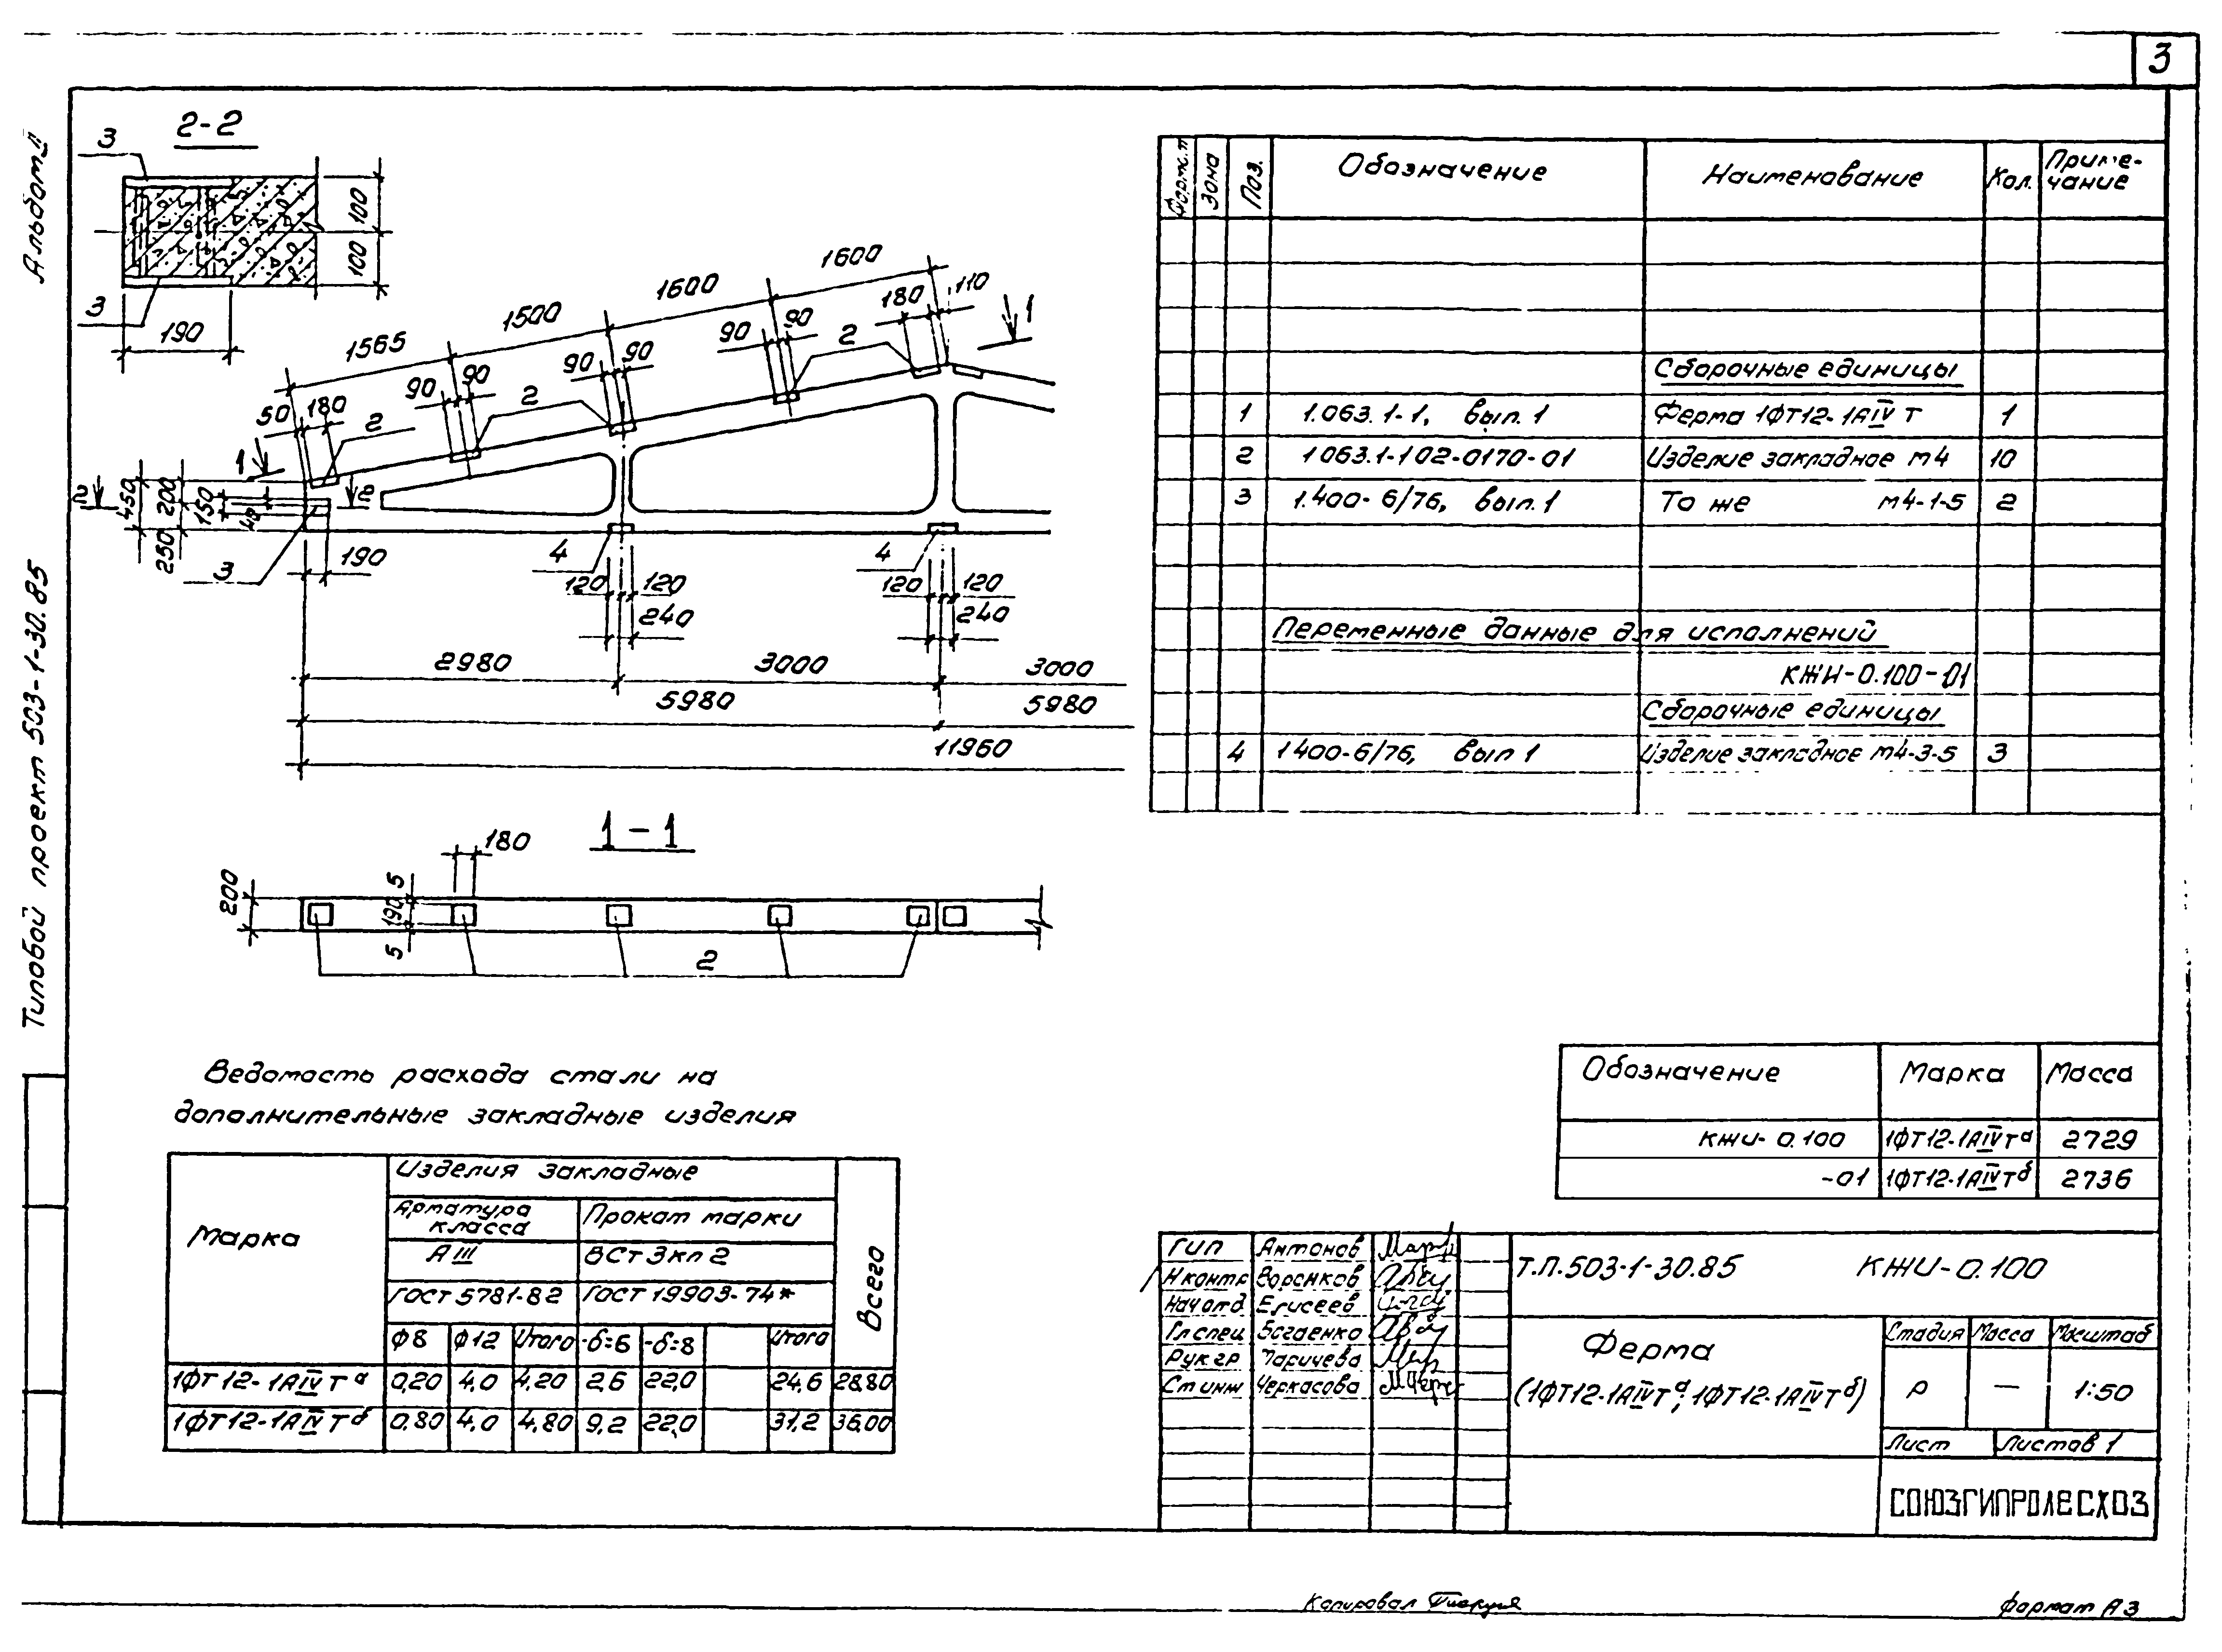 3
Альбом II
Типовой проект 503-1-30.85
2-2
3
3
100
100
190
1565
1500
1600
1600
110
180
90 90
90 90
90 90
50 180
2
2
2
1
1
2
2
450
200
150
40
250
190
3
4
4
120 120
240
120 120
240
2980
3000
3000
5980
5980
11960
1-1
180
200
5
190
5
2
Формат Зона Поз. Обозначение Наименование Кол. Приме-
чание
Сборочные единицы
1 1.063.1-1, вып.1 Ферма 1ФТ12-1АIV Т 1
2 1 063.1-1 02-0170-01 Изделие закладное м4 10
3 1.400-6/76, вып.1 То же м4-1-5 2
Переменные данные для исполнений
КЖИ-0.100-01
Сборочные единицы
4 1400-6/76, вып 1 Изделие закладное м4-3-5 3
Ведомость расхода стали на
дополнительные закладные изделия
Марка Изделия закладные Всего
Арматура класса Прокат марки
АIII ВСт 3кп 2
ГОСТ 5781-82 ГОСТ 19903-74*
Ф8 Ф12 Итого -δ=6 -δ=8 Итого
1ФТ12-1АIVТа 0,20 4,0 4,20 2,6 22,0 24,6 28,80
1ФТ12-1АIVТб 0,80 4,0 4,80 9,2 22,0 31,2 36,00
Обозначение Марка Масса
КЖИ-0.100 1ФТ12-1АIVТа 2729
-01 1ФТ12-1АIVТб 2736
ГИП Антонов
Н контр Воронков
Нач отд Елисеев
Гл спец Богаенко
Рук гр Ларичева
Ст инж Черкасова
Т.П.503-1-30.85 КЖИ-0.100
Ферма
(1ФТ12-1АIVТа; 1ФТ12-1АIVТб)
Стадия Масса Масштаб
Р — 1:50
Лист Листов 1
СОЮЗГИПРОЛЕСХОЗ
Копировал
Формат А3